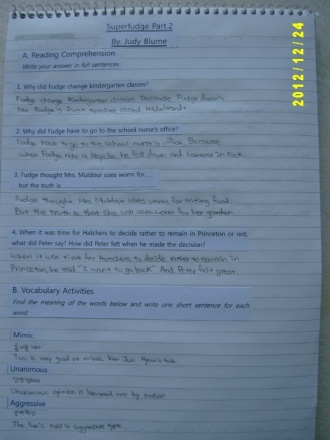 Superfudge Part.2
By. Judy Blume
2012/12/24
A. Reading Comprehension
Write your answer in full sentences:
1. Why did Fudge change kindergarten classes?
Fudge change kindergarten classes Because Fudge
the Fudge's first teacher called
2. Why did Fudge have to go to the school nurse's office?
Fudge have to go to the school nurse's office Because
when Fudge ride a bicycle he fall down and hammer in rock.
3. Fudge thought Mrs. Muldour uses worm for....
but the truth is
Fudge thought Mrs. Muldour uses worms for eating food
But the truth is that she uses worm for her garden
4. When it was time for Hatchers to decide rather to remain in Princeton or not,
what did Peter say? How did Peter felt when he made the decision?
When it was time for Hatchers to decide rather to remain in
Princeton, he said "I want to go back" And Peter felt great.
B. Vocabulary Activities
Find the meaning of the words below and write one short sentence for each
word
Mimic
is very good at mimic talk
Unanimous
Unanimous opinion is became one by
Aggressive
The is aggressive type